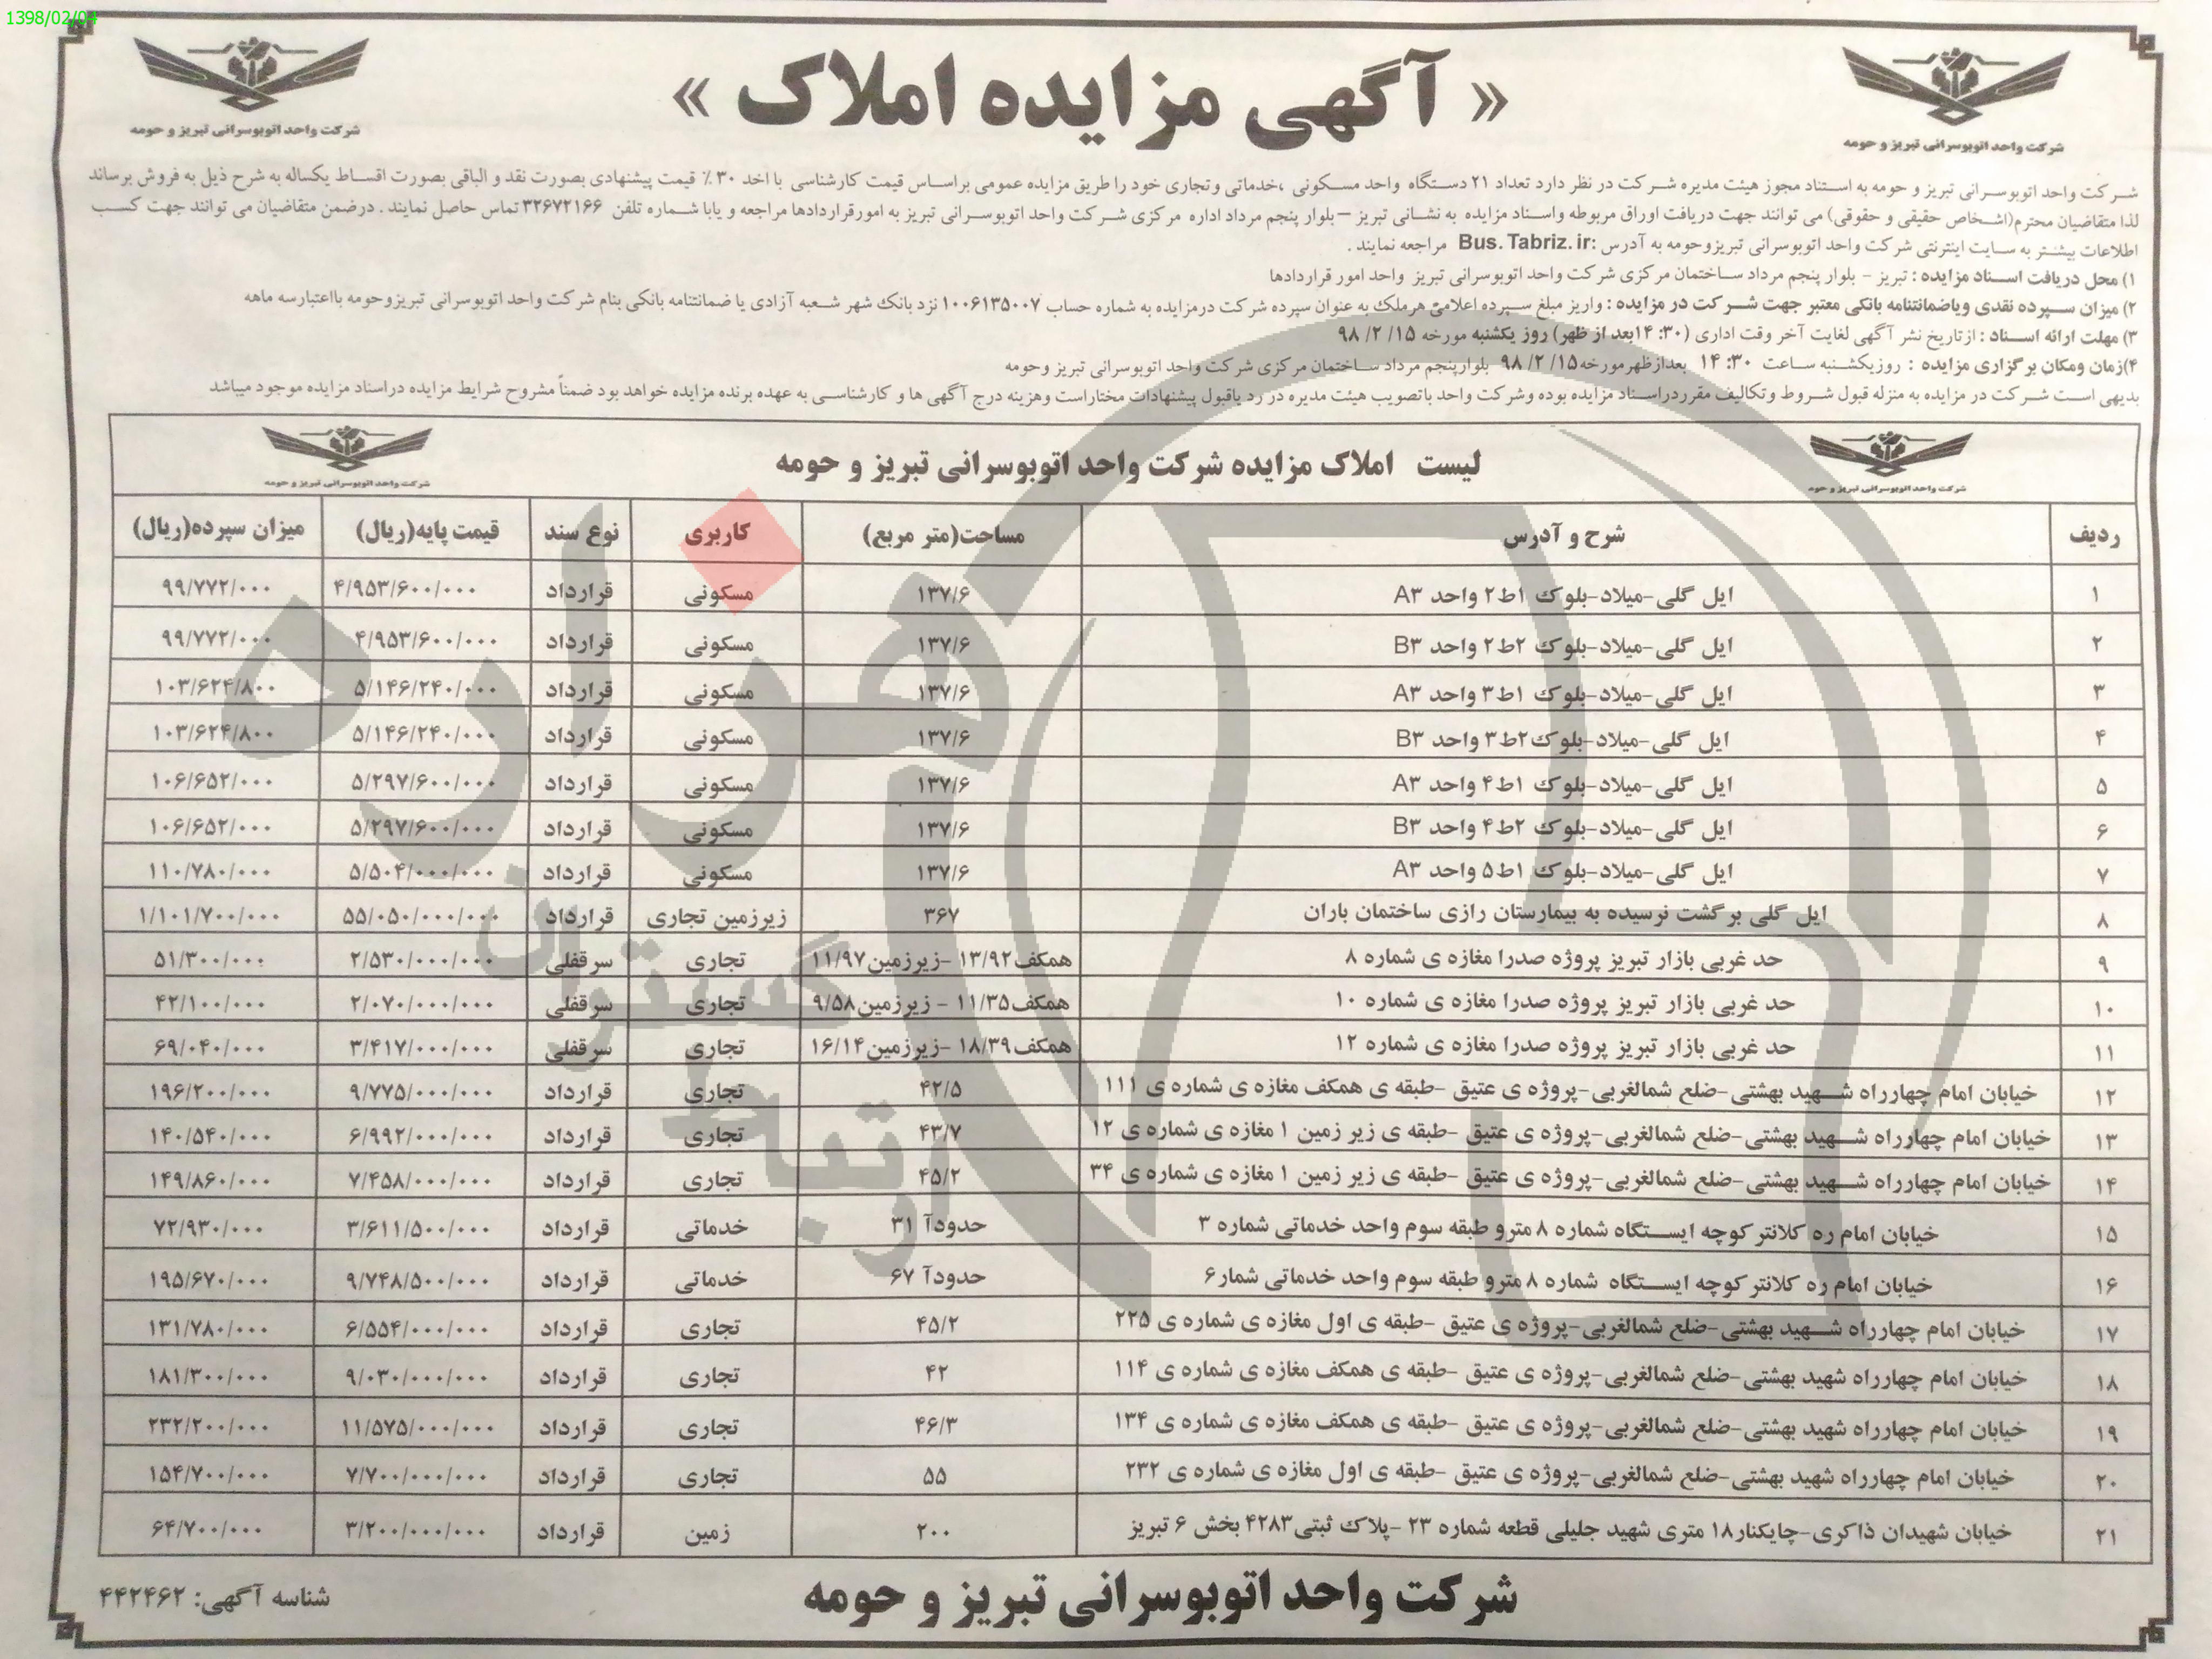 1398/02/04
« آگهی مزایده املاک »
شرکت واحد اتوبوسرانی تبریز و حومه
شرکت واحد اتوبوسرانی تبریز و حومه
شرکت واحد اتوبوسرانی تبریز و حومه به استناد مجوز هیئت مدیره شرکت در نظر دارد تعداد ۲۱ دستگاه واحد مسکونی ،خدماتی وتجاری خود را طریق مزایده عمومی براساس قیمت کارشناسی با اخد ۳۰٪ قیمت پیشنهادی بصورت نقد و الباقی بصورت اقساط یکساله به شرح ذیل به فروش برساند
لذا متقاضیان محترم(اشخاص حقیقی و حقوقی) می توانند جهت دریافت اوراق مربوطه واسناد مزایده به نشانی تبریز –بلوار پنجم مرداد اداره مرکزی شرکت واحد اتوبوسرانی تبریز به امورقراردادها مراجعه و یابا شماره تلفن ۳۲۶۷۲۱۶۶ تماس حاصل نمایند . درضمن متقاضیان می توانند جهت کسب
اطلاعات بیشتر به سایت اینترنتی شرکت واحد اتوبوسرانی تبریزوحومه به آدرس :Bus.Tabriz.ir مراجعه نمایند .
۱) محل دریافت اسناد مزایده : تبریز - بلوار پنجم مرداد ساختمان مرکزی شرکت واحد اتوبوسرانی تبریز واحد امور قراردادها
۲) میزان سپرده نقدی ویاضمانتنامه بانکی معتبر جهت شرکت در مزایده : واریز مبلغ سپرده اعلامی هرملک به عنوان سپرده شرکت درمزایده به شماره حساب ۱۰۰۶۱۳۵۰۰۷ نزد بانک شهر شعبه آزادی یا ضمانتنامه بانکی بنام شرکت واحد اتوبوسرانی تبریزوحومه بااعتبارسه ماهه
۳) مهلت ارائه اسناد : ازتاریخ نشر آگهی لغایت آخر وقت اداری (۱۴:۳۰بعد از ظهر) روز یکشنبه مورخه ۹۸/۲/۱۵
۴)زمان ومکان برگزاری مزایده : روزیکشنبه ساعت ۱۴:۳۰ بعدازظهرمورخه۹۸/۲/۱۵ بلوارپنجم مرداد ساختمان مرکزی شرکت واحد اتوبوسرانی تبریز وحومه
بدیهی است شرکت در مزایده به منزله قبول شروط وتکالیف مقرردراسناد مزایده بوده وشرکت واحد باتصویب هیئت مدیره در رد یاقبول پیشنهادات مختاراست وهزینه درج آگهی ها و کارشناسی به عهده برنده مزایده خواهد بود ضمناً مشروح شرایط مزایده دراسناد مزایده موجود میباشد
لیست املاک مزایده شرکت واحد اتوبوسرانی تبریز و حومه
شرکت واحد اتوبوسرانی تبریز و حومه
شرکت واحد اتوبوسرانی تبریز و حومه
ردیف شرح و آدرس مساحت(متر مربع) کاربری نوع سند قیمت پایه(ریال) میزان سپرده(ریال)
۱ ایل گلی-میلاد-بلوک ۱ط۲ واحد A۳ ۱۳۷/۶ مسکونی قرارداد ۴/۹۵۳/۶۰۰/۰۰۰ ۹۹/۷۷۲/۰۰۰
۲ ایل گلی-میلاد-بلوک ۲ط۲ واحد B۳ ۱۳۷/۶ مسکونی قرارداد ۴/۹۵۳/۶۰۰/۰۰۰ ۹۹/۷۷۲/۰۰۰
۳ ایل گلی-میلاد-بلوک ۱ط۳ واحد A۳ ۱۳۷/۶ مسکونی قرارداد ۵/۱۴۶/۲۴۰/۰۰۰ ۱۰۳/۶۲۴/۸۰۰
۴ ایل گلی-میلاد-بلوک۲ط۳ واحد B۳ ۱۳۷/۶ مسکونی قرارداد ۵/۱۴۶/۲۴۰/۰۰۰ ۱۰۳/۶۲۴/۸۰۰
۵ ایل گلی-میلاد-بلوک ۱ط۴ واحد A۳ ۱۳۷/۶ مسکونی قرارداد ۵/۲۹۷/۶۰۰/۰۰۰ ۱۰۶/۶۵۲/۰۰۰
۶ ایل گلی-میلاد-بلوک ۲ط۴ واحد B۳ ۱۳۷/۶ مسکونی قرارداد ۵/۲۹۷/۶۰۰/۰۰۰ ۱۰۶/۶۵۲/۰۰۰
۷ ایل گلی-میلاد-بلوک ۱ط۵ واحد A۳ ۱۳۷/۶ مسکونی قرارداد ۵/۵۰۴/۰۰۰/۰۰۰ ۱۱۰/۷۸۰/۰۰۰
۸ ایل گلی برگشت نرسیده به بیمارستان رازی ساختمان باران ۳۶۷ زیرزمین تجاری قرارداد ۵۵/۰۵۰/۰۰۰/۰۰۰ ۱/۱۰۱/۷۰۰/۰۰۰
۹ حد غربی بازار تبریز پروژه صدرا مغازه ی شماره ۸ همکف۱۳/۹۲ -زیرزمین۱۱/۹۷ تجاری سرقفلی ۲/۵۳۰/۰۰۰/۰۰۰ ۵۱/۳۰۰/۰۰۰
۱۰ حد غربی بازار تبریز پروژه صدرا مغازه ی شماره ۱۰ همکف۱۱/۳۵ - زیرزمین۹/۵۸ تجاری سرقفلی ۲/۰۷۰/۰۰۰/۰۰۰ ۴۲/۱۰۰/۰۰۰
۱۱ حد غربی بازار تبریز پروژه صدرا مغازه ی شماره ۱۲ همکف۱۸/۳۹ -زیرزمین۱۶/۱۴ تجاری سرقفلی ۳/۴۱۷/۰۰۰/۰۰۰ ۶۹/۰۴۰/۰۰۰
۱۲ خیابان امام چهارراه شهید بهشتی-ضلع شمالغربی-پروژه ی عتیق -طبقه ی همکف مغازه ی شماره ی ۱۱۱ ۴۲/۵ تجاری قرارداد ۹/۷۷۵/۰۰۰/۰۰۰ ۱۹۶/۲۰۰/۰۰۰
۱۳ خیابان امام چهارراه شهید بهشتی-ضلع شمالغربی-پروژه ی عتیق -طبقه ی زیر زمین ۱ مغازه ی شماره ی ۱۲ ۴۳/۷ تجاری قرارداد ۶/۹۹۲/۰۰۰/۰۰۰ ۱۴۰/۵۴۰/۰۰۰
۱۴ خیابان امام چهارراه شهید بهشتی-ضلع شمالغربی-پروژه ی عتیق -طبقه ی زیر زمین ۱ مغازه ی شماره ی ۳۴ ۴۵/۲ تجاری قرارداد ۷/۴۵۸/۰۰۰/۰۰۰ ۱۴۹/۸۶۰/۰۰۰
۱۵ خیابان امام ره کلانتر کوچه ایستگاه شماره ۸ مترو طبقه سوم واحد خدماتی شماره ۳ حدودآ ۳۱ خدماتی قرارداد ۳/۶۱۱/۵۰۰/۰۰۰ ۷۲/۹۳۰/۰۰۰
۱۶ خیابان امام ره کلانتر کوچه ایستگاه شماره ۸ مترو طبقه سوم واحد خدماتی شمار۶ حدودآ ۶۷ خدماتی قرارداد ۹/۷۴۸/۵۰۰/۰۰۰ ۱۹۵/۶۷۰/۰۰۰
۱۷ خیابان امام چهارراه شهید بهشتی-ضلع شمالغربی-پروژه ی عتیق -طبقه ی اول مغازه ی شماره ی ۲۲۵ ۴۵/۲ تجاری قرارداد ۶/۵۵۴/۰۰۰/۰۰۰ ۱۳۱/۷۸۰/۰۰۰
۱۸ خیابان امام چهارراه شهید بهشتی-ضلع شمالغربی-پروژه ی عتیق -طبقه ی همکف مغازه ی شماره ی ۱۱۴ ۴۲ تجاری قرارداد ۹/۰۳۰/۰۰۰/۰۰۰ ۱۸۱/۳۰۰/۰۰۰
۱۹ خیابان امام چهارراه شهید بهشتی-ضلع شمالغربی-پروژه ی عتیق -طبقه ی همکف مغازه ی شماره ی ۱۳۴ ۴۶/۳ تجاری قرارداد ۱۱/۵۷۵/۰۰۰/۰۰۰ ۲۳۲/۲۰۰/۰۰۰
۲۰ خیابان امام چهارراه شهید بهشتی-ضلع شمالغربی-پروژه ی عتیق -طبقه ی اول مغازه ی شماره ی ۲۳۲ ۵۵ تجاری قرارداد ۷/۷۰۰/۰۰۰/۰۰۰ ۱۵۴/۷۰۰/۰۰۰
۲۱ خیابان شهیدان ذاکری-چایکنار۱۸ متری شهید جلیلی قطعه شماره ۲۳ -پلاک ثبتی۴۲۸۳ بخش ۶ تبریز ۲۰۰ زمین قرارداد ۳/۲۰۰/۰۰۰/۰۰۰ ۶۴/۷۰۰/۰۰۰
شرکت واحد اتوبوسرانی تبریز و حومه
شناسه آگهی: ۴۴۲۴۶۲
هزاره